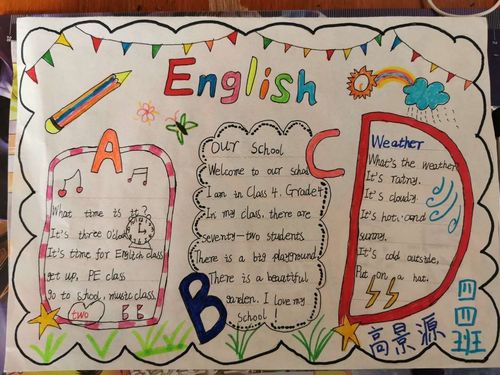 English
A
What time is it?
It's three O'clock
It's time for English class
get up, PE class
Go to school, music class.
two
B
Our School
Welcome to our school
I am in Class 4. Grade 4
In my class, there are
seventy-two students
There is a big playground
There is a beautiful
garden. I love my
school!
C
Weather
What's the weather
It's rainy.
It's cloudy.
It's hot, and
sunny.
It's cold outside,
Put on a hat.
四四班
高景源